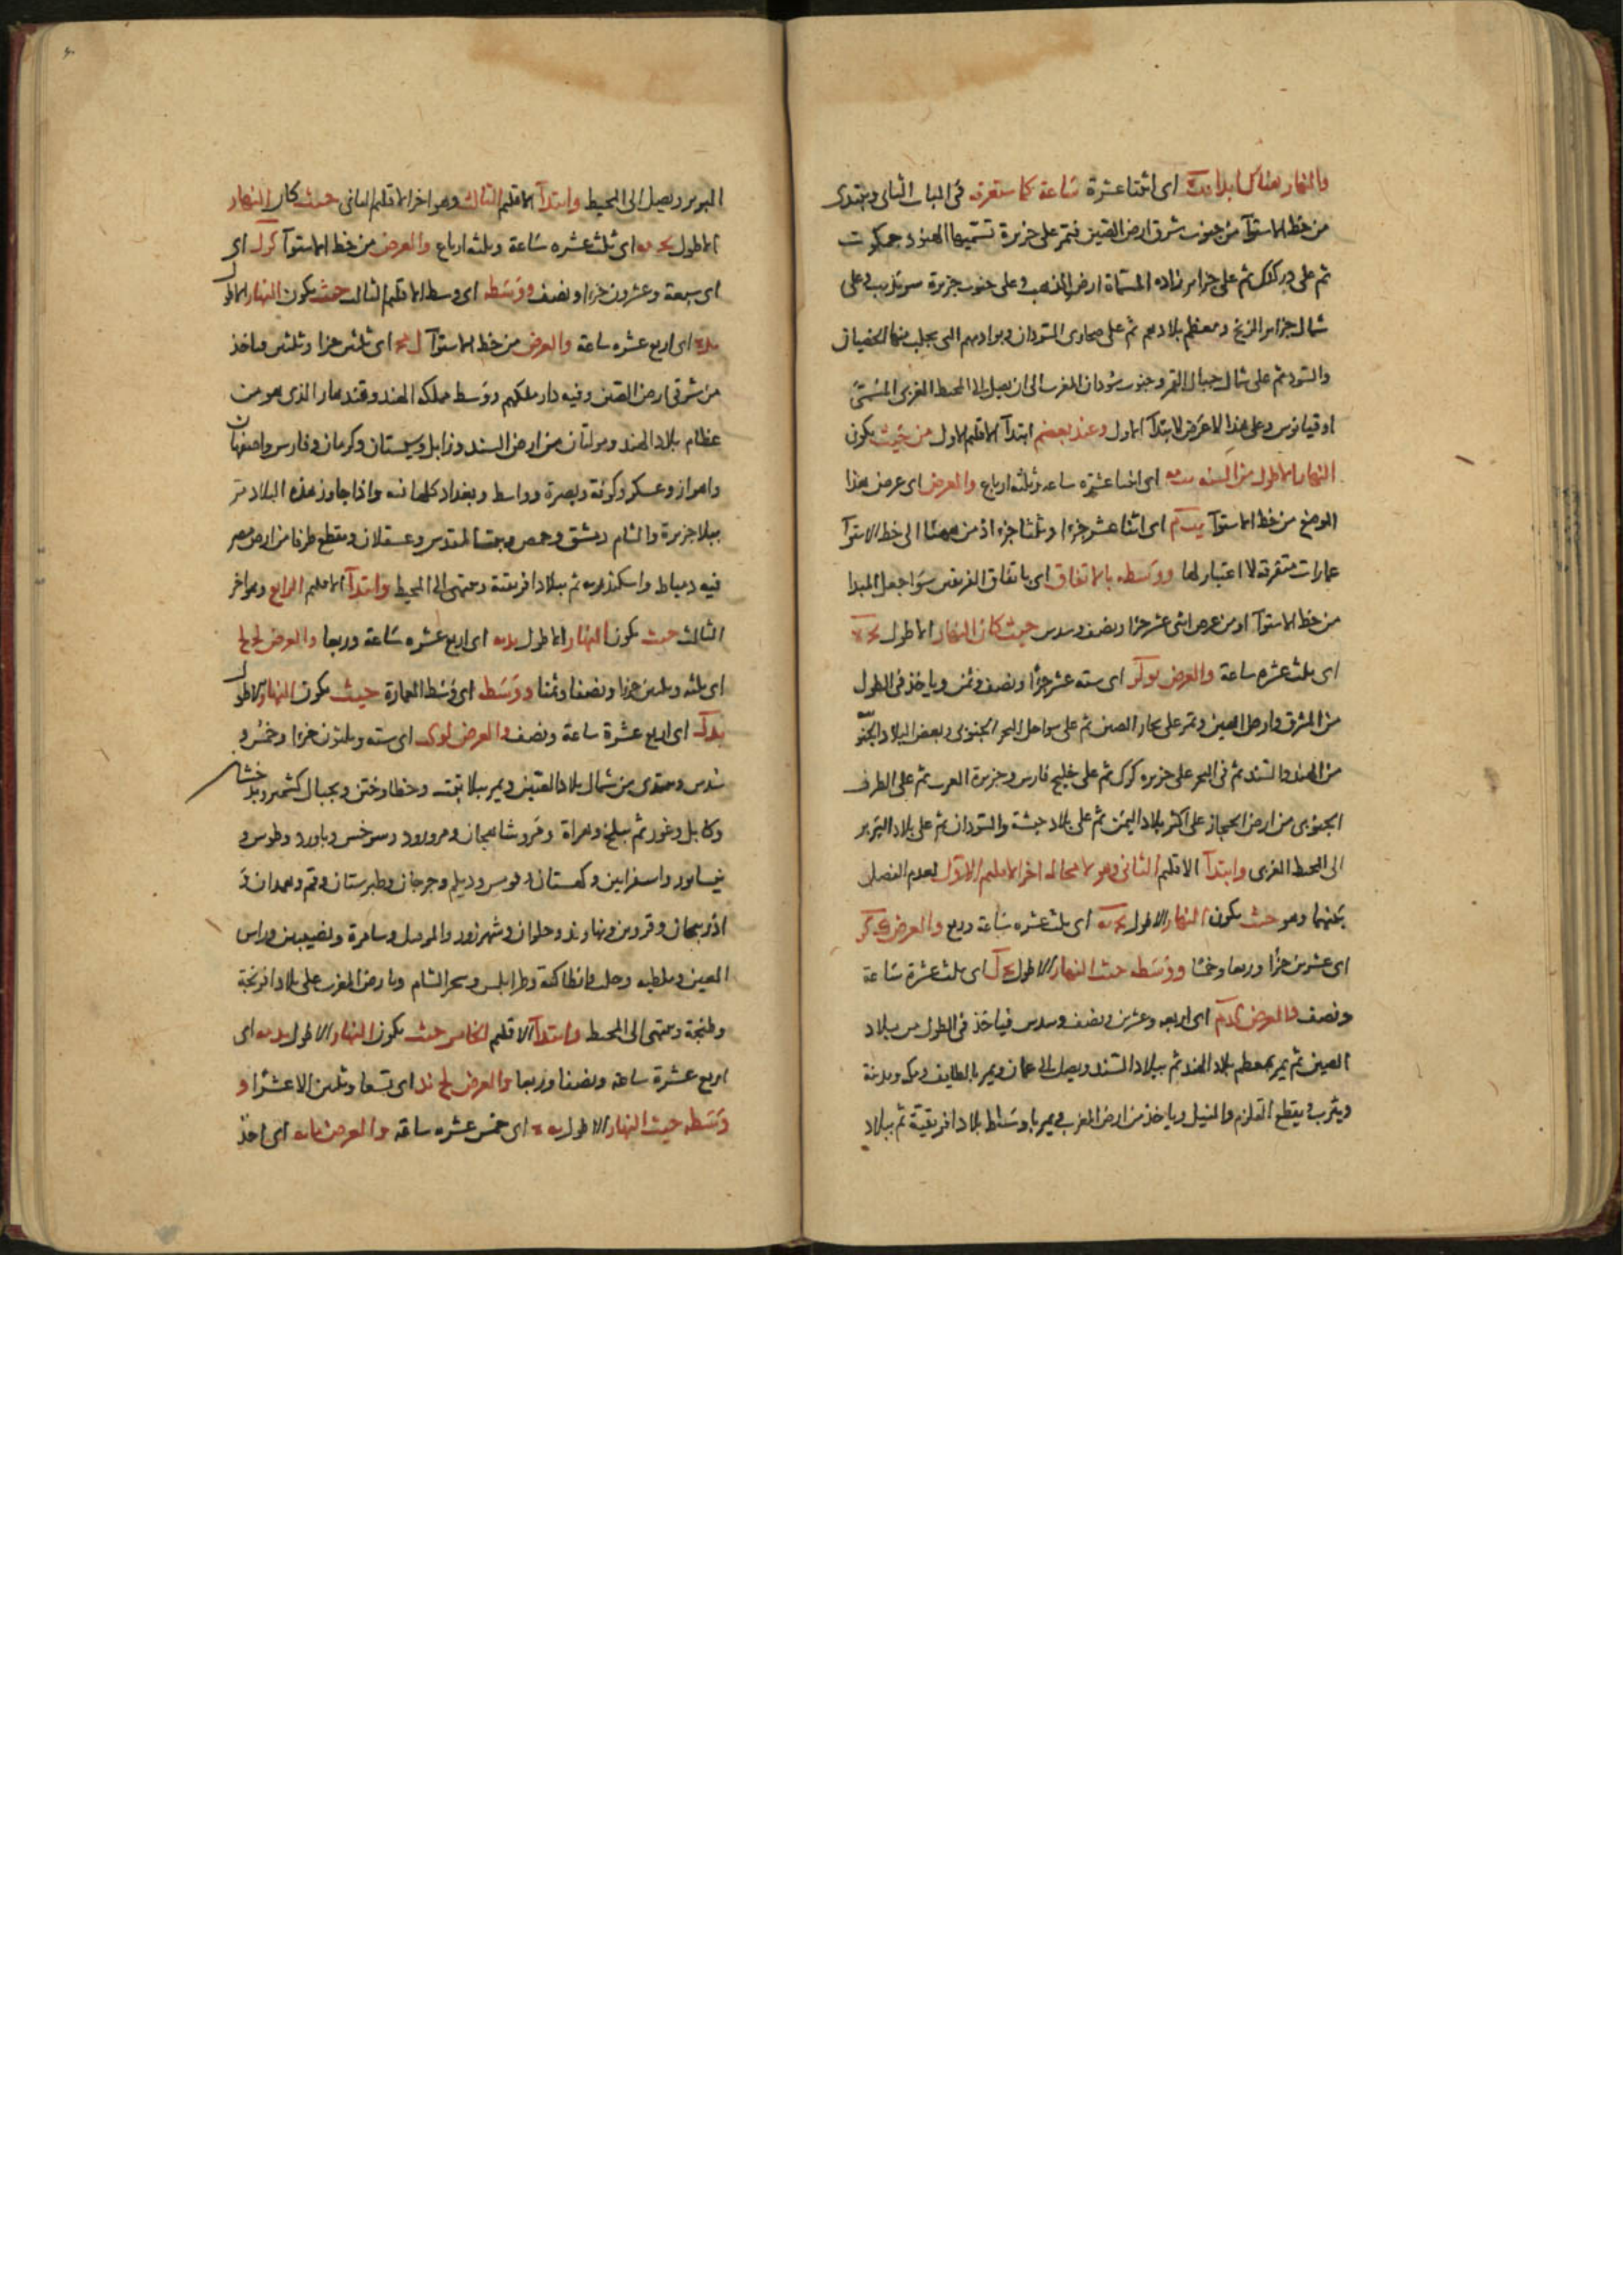 والنهار هناك ابدا اى اثنتا عشرة ساعة كما ستعرفه فى الباب الثانى ويبتدى
من خط الاستوآ من جنوب شرق ارض الصين فتمر على جزيرة تسميها الهنود جمكوت
ثم على كنك ثم على جزاير المسماة ارض الذهب وعلى جنوب جزيرة سرنديب وعلى
شمال جزاير الزنج ومعظم بلادهم ثم على صحارى السودان وبواديهم التى يجلب منها الخصيان
والسود ثم على شمال جبال القمر وجنوب سودان المغرب الى ان يصل الى المحيط الغربى المسمى
اوقيانوس وعلى هذا لا عرض لابتدآ الاول وعند بعضهم ابتدآ الاقليم الاول من حيث يكون
النهار الاطول من السنه يب مه اى اثنتا عشرة ساعه وثلثه ارباع والعرض اى عرض هذا
الموضع من خط الاستوآ يب م اى اثنا عشر جزءا وثلثا جزء اذ من ههنا الى خط الاستوآ
عمارات متفرقه لا اعتبار لها ووسطه بالاتفاق اى باتفاق الفريقين سوا جعل المبدا
من خط الاستوآ او من عرض اثنى عشر جزءا ونصف وسدس حيث كان النهار الاطول يج
اى ثلث عشره ساعة والعرض يو لز اى سته عشر جزءا ونصف وثمن وياخذ فى الطول
من المشرق وارض الصين وتمر على بحار الصين ثم على سواحل البحر الجنوبى وبعض البلاد الجنو
من الهند والسند ثم فى البحر على جزيره كرك ثم على خليج فارس وجزيرة العرب ثم على الطرف
الجنوبى من ارض الحجاز على اكثر بلاد اليمن ثم على بلاد حبشة والسودان ثم على بلاد البربر
الى المحيط الغربى وابتدآ الاقليم الثانى وهو لا محاله اخر الاقليم الاول لعدم الفصل
بينهما وهو حيث يكون النهار الاطول يج يه اى ثلث عشره ساعة وربع والعرض ك كز
اى عشرين جزءا وربعا وخمسا ووسطه حيث النهار الاطول يج ل اى ثلث عشرة ساعة
ونصف والعرض كد م اى اربعه وعشرين ونصف وسدس فياخذ فى الطول من بلاد
الصين ثم يمر بمعظم بلاد الهند ثم ببلاد السند ويصل الى عمان ويمر بالطايف ومكه ومدينة
ويثرب ويقطع القلزم والنيل وياخذ من ارض المغرب فيمر باوساط بلاد افريقية ثم ببلاد
البربر ويصل الى المحيط وابتدآ الاقليم الثالث وهو اخر الاقليم الثانى حيث كان النهار
الاطول يج مه اى ثلث عشره ساعة وثلثه ارباع والعرض من خط الاستوآ كز ل اى
اى سبعة وعشرون جزءا ونصف ووسطه اى وسط الاقليم الثالث حيث يكون النهار الاطول
يد اى اربع عشره ساعة والعرض من خط الاستوآ ل م اى ثلثين جزءا وثلثين وياخذ
من شرقى ارض الصين وفيه دار ملكهم ووسط مملكة الهند وقندهار الذى هو من
عظام بلاد الهند ومولتان من ارض السند وزابل وسجستان وكرمان وفارس واصفهان
واهواز وعسكر وكوفة وبصرة وواسط وبغداد كلها فيه واذا جاوز هذه البلاد مر
ببلاد جزيرة والشام دمشق وحمص وبيت المقدس وعسقلان ويقطع طرفا من ارض مصر
فيه دمياط واسكندريه ثم ببلاد افريقية وينتهى الى المحيط وابتدآ الاقليم الرابع وهو اخر
الثالث حيث يكون النهار الاطول يد يه اى اربع عشره ساعة وربعا والعرض لج لح
اى ثلثه وثلثين جزءا ونصفا وثمنا ووسطه اى وسط العمارة حيث يكون النهار الاطول
يد ل اى اربع عشرة ساعة ونصف والعرض لو كب اى سته وثلثون جزءا وخمس و
سدس ويبتدى من شمال بلاد الصين ويمر ببلاد تبت وخطا وختن وبجبال كشمير وبدخشان
وكابل وغور ثم ببلخ وهراة ومرو شاهيجان ومرورود وسرخس وباورد وطوس و
نيسابور واسفراين وكهستان وقومس وديلم وجرجان وطبرستان وقم وهمدان و
اذربيجان وقزوين ونهاوند وحلوان وشهرزور والموصل وسامرة ونصيبين وراس
العين وملطيه وحلب وانطاكية وطرابلس وبحر الشام وبارض المغرب على بلاد افرنجة
وطنجة وينتهى الى المحيط وابتدآ الاقليم الخامس حيث يكون النهار الاطول يد مه اى
اربع عشرة ساعة ونصفا وربعا والعرض لح ند اى تسعا وثلثين الا عشرا و
وسطه حيث النهار الاطول يه اى خمس عشره ساعة والعرض ما يه اى احد